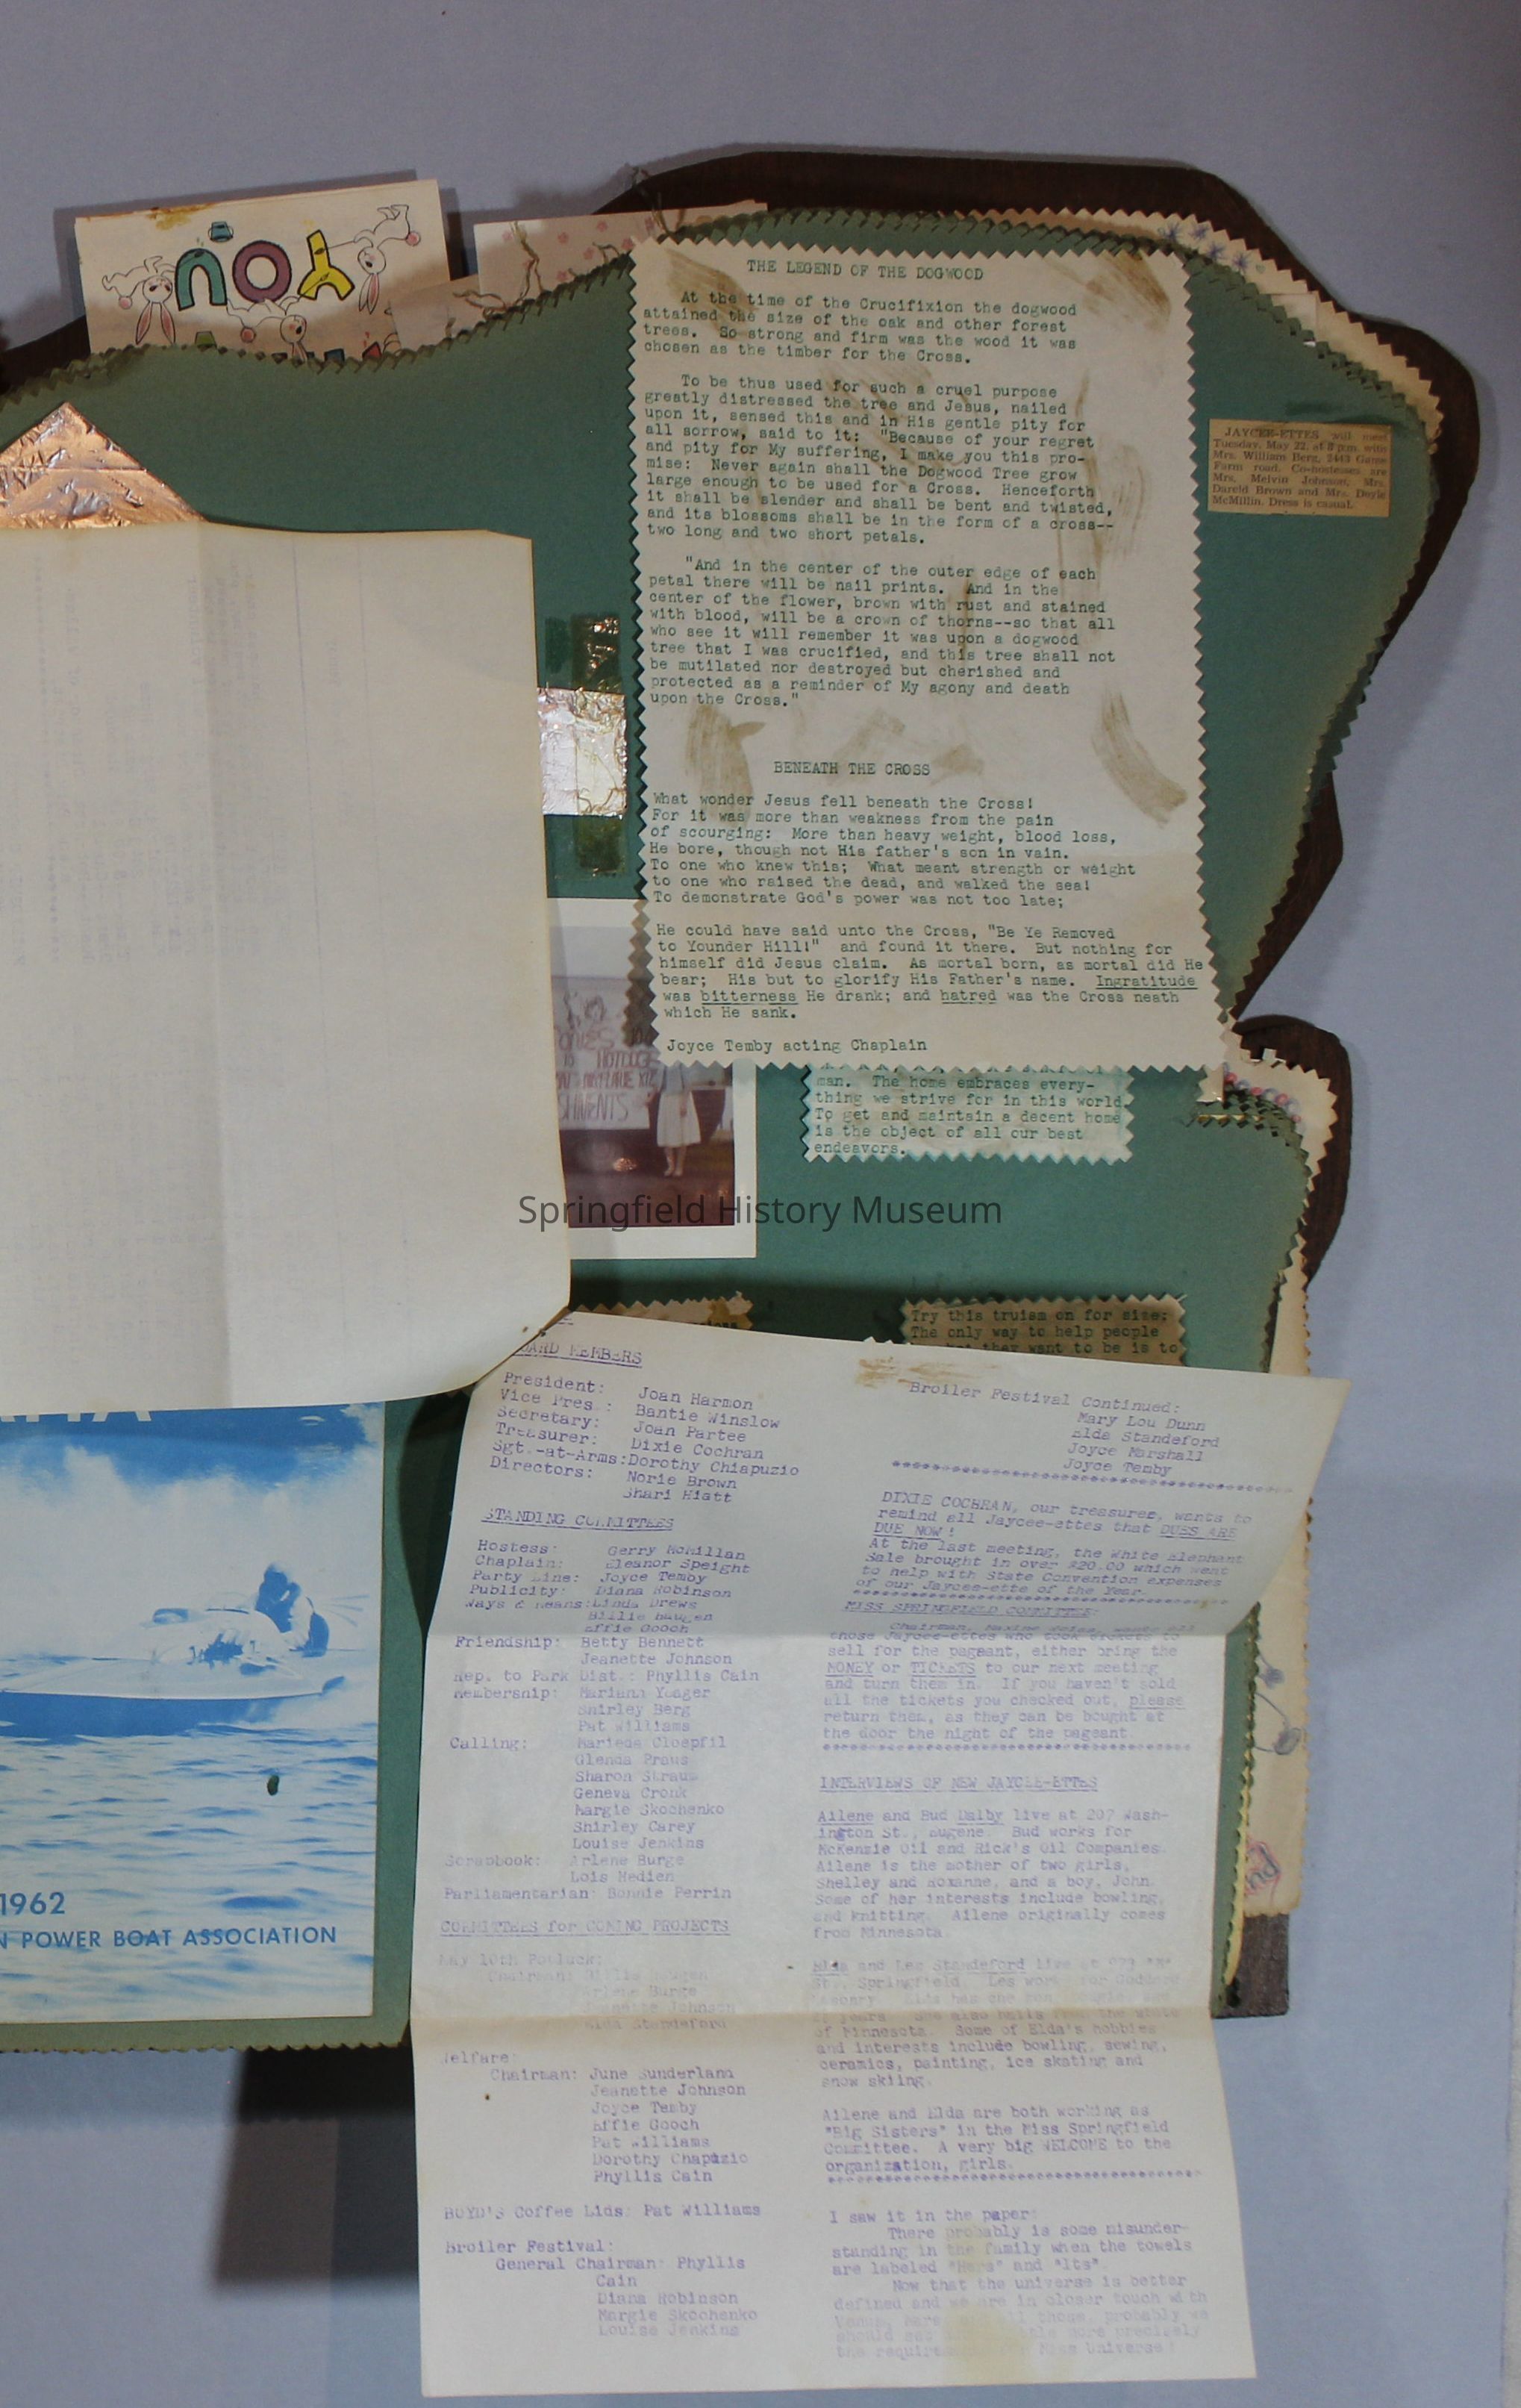 YOU
THE LEGEND OF THE DOGWOOD
At the time of the Crucifixion the dogwood
attained the size of the oak and other forest
trees. So strong and firm was the wood it was
chosen as the timber for the Cross.
To be thus used for such a cruel purpose
greatly distressed the tree and Jesus, nailed
upon it, sensed this and in His gentle pity for
all sorrow, said to it: "Because of your regret
and pity for My suffering, I make you this pro-
mise: Never again shall the Dogwood Tree grow
large enough to be used for a Cross. Henceforth
it shall be slender and shall be bent and twisted,
and its blossoms shall be in the form of a cross--
two long and two short petals.
"And in the center of the outer edge of each
petal there will be nail prints. And in the
center of the flower, brown with rust and stained
with blood, will be a crown of thorns--so that all
who see it will remember it was upon a dogwood
tree that I was crucified, and this tree shall not
be mutilated nor destroyed but cherished and
protected as a reminder of My agony and death
upon the Cross."
BENEATH THE CROSS
What wonder Jesus fell beneath the Cross!
For it was more than weakness from the pain
of scourging: More than heavy weight, blood loss,
He bore, though not His father's son in vain.
To one who knew this; What meant strength or weight
to one who raised the dead, and walked the sea!
To demonstrate God's power was not too late;
He could have said unto the Cross, "Be Ye Removed
to Younder Hill!" and found it there. But nothing for
himself did Jesus claim. As mortal born, as mortal did He
bear; His but to glorify His Father's name. Ingratitude
was bitterness He drank; and hatred was the Cross neath
which He sank.
Joyce Temby acting Chaplain
JAYCEE-ETTES will meet
Tuesday, May 22, at 8 p.m. with
Mrs. William Berg, 3443 Game
Farm road. Co-hostesses are
Mrs. Melvin Johnson, Mrs.
Dareld Brown and Mrs. Doyle
McMillin. Dress is casual.
man. The home embraces every-
thing we strive for in this world.
To get and maintain a decent home
is the object of all our best
endeavors.
HOTDOGS
Springfield History Museum
Try this truism on for size:
The only way to help people
they want to be is to
BOARD MEMBERS
President: Joan Harmon
Vice Pres.: Bantie Winslow
Secretary: Joan Partee
Treasurer: Dixie Cochran
Sgt.-at-Arms: Dorothy Chiapuzio
Directors: Norie Brown
Shari Hiatt
STANDING COMMITTEES
Hostess: Gerry McMillan
Chaplain: Eleanor Speight
Party Line: Joyce Temby
Publicity: Diana Robinson
Ways & Means: Linda Drews
Billie Haugen
Effie Gooch
Friendship: Betty Bennett
Jeanette Johnson
Rep. to Park Dist.: Phyllis Cain
Membership: Mariann Yeager
Shirley Berg
Pat Williams
Calling: Marieda Cloepfil
Glenda Praus
Sharon Straus
Geneva Cronk
Margie Skochenko
Shirley Carey
Louise Jenkins
Scrapbook: Arlene Burge
Lois Medien
Parliamentarian: Bonnie Perrin
COMMITTEES for COMING PROJECTS
May 10th Potluck:
Chairman: Billie Haugen
Arlene Burge
Jeanette Johnson
Elda Standeford
Welfare:
Chairman: June Sunderland
Jeanette Johnson
Joyce Temby
Effie Gooch
Pat Williams
Dorothy Chapuzio
Phyllis Cain
BOYD'S Coffee Lids: Pat Williams
Broiler Festival:
General Chairman: Phyllis
Cain
Diana Robinson
Margie Skochenko
Louise Jenkins
Broiler Festival Continued:
Mary Lou Dunn
Elda Standeford
Joyce Marshall
Joyce Temby
DIXIE COCHRAN, our treasurer, wants to
remind all Jaycee-ettes that DUES ARE
DUE NOW!
At the last meeting, the White Elephant
Sale brought in over $20.00 which went
to help with State Convention expenses
of our Jaycee-ette of the Year.
MISS SPRINGFIELD COMMITTEE:
Chairman, Maxine wants all
those Jaycee-ettes who took tickets to
sell for the pageant, either bring the
MONEY or TICKETS to our next meeting
and turn them in. If you haven't sold
all the tickets you checked out, please
return them, as they can be bought at
the door the night of the pageant.
INTERVIEWS OF NEW JAYCEE-ETTES
Ailene and Bud Dalby live at 207 Wash-
ington St., Eugene. Bud works for
McKenzie Oil and Rick's Oil Companies.
Ailene is the mother of two girls,
Shelley and Roxanne, and a boy, John.
Some of her interests include bowling,
and knitting. Ailene originally comes
from Minnesota.
Elda and Les Standeford live at
St., Springfield. Les works for
She also hails from the state
of Minnesota. Some of Elda's hobbies
and interests include bowling, sewing,
ceramics, painting, ice skating and
snow skiing.
Ailene and Elda are both working as
"Big Sisters" in the Miss Springfield
Committee. A very big WELCOME to the
organization, girls.
I saw it in the paper:
There probably is some misunder-
standing in the family when the towels
are labeled "Hers" and "Its".
Now that the universe is better
defined and we are in closer touch with
Venus, Mars those, probably we
should more precisely
the Miss Universe!
1962
N POWER BOAT ASSOCIATION